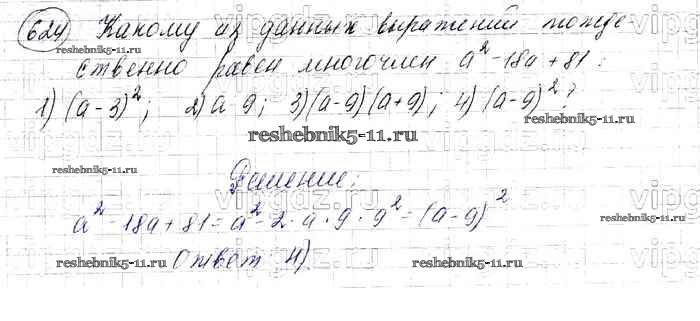 624 Какому из данных выражений тожде
ственно равен многочлен a² - 18a + 81:
1) (a - 3)²; 2) a 9; 3) (a - 9)(a + 9); 4) (a - 9)²?
reshebnik5-11.ru
reshebnik5-11.ru
reshebnik5-11.ru
reshebnik5-11.ru
Решение:
a² - 18a + 81 = a² - 2 · a · 9 · 9² = (a - 9)²
reshebnik5-11.ru
Ответ 4).
reshebnik5-11.ru
reshebnik5-11.ru